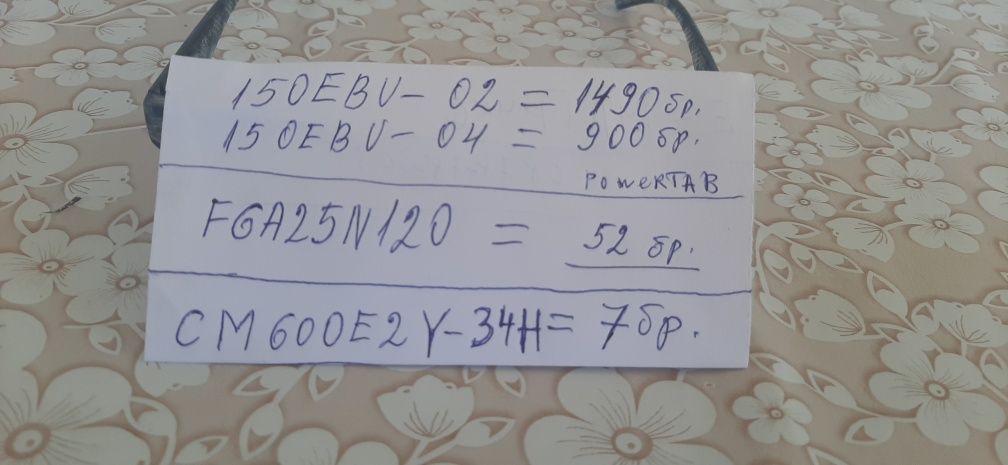 150EBU-02 = 1490 бр.
150EBU-04 = 900 бр.
POWERTAB
FGA25N120 = 52 бр.
CM600E2Y-34H = 7 бр.